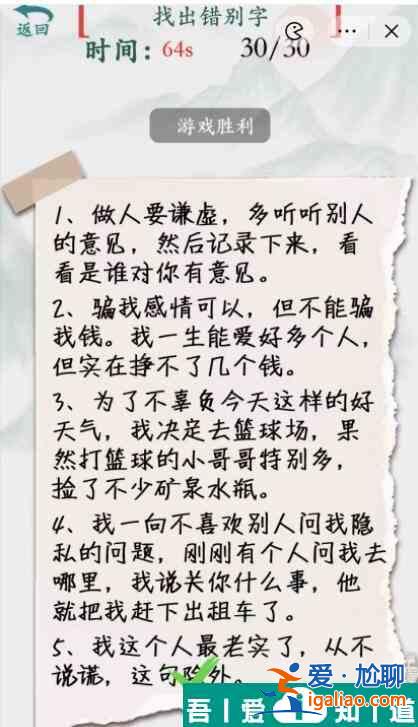 找出错别字
返回
时间：64s 30/30
游戏胜利
1、做人要谦虚，多听听别人
的意见，然后记录下来，看
看是谁对你有意见。
2、骗我感情可以，但不能骗
我钱。我一生能爱好多个人，
但实在挣不了几个钱。
3、为了不辜负今天这样的好
天气，我决定去篮球场，果
然打篮球的小哥哥特别多，
捡了不少矿泉水瓶。
4、我一向不喜欢别人问我隐
私的问题，刚刚有个人问我去
哪里，我说关你什么事，他
就把我赶下出租车了。
5、我这个人最老实了，从不
说谎，这句除外。
爱·尬聊
www.igaliao.com
吾爱 知道